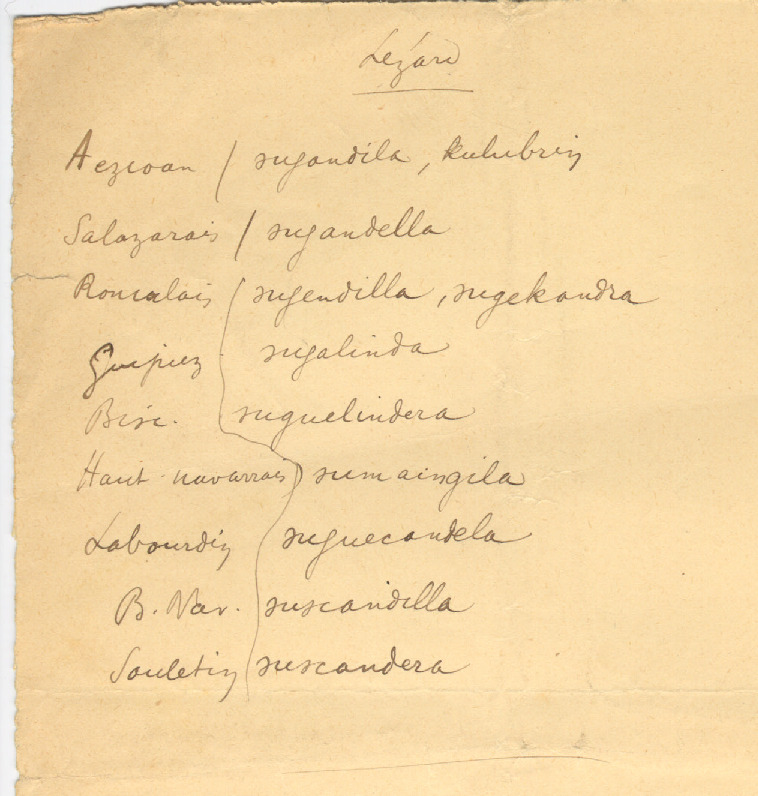 Lézard
Aezcoan / sugandila, kulubrin
Salazarais / sugandella
Roncalais / sugendilla, sugekandra
Guipuz sugalinda
Bisc. suguelindera
Haut-navarrais sumaingila
Labourdin suguecandela
B. Nav. suscandilla
Souletin suscandera